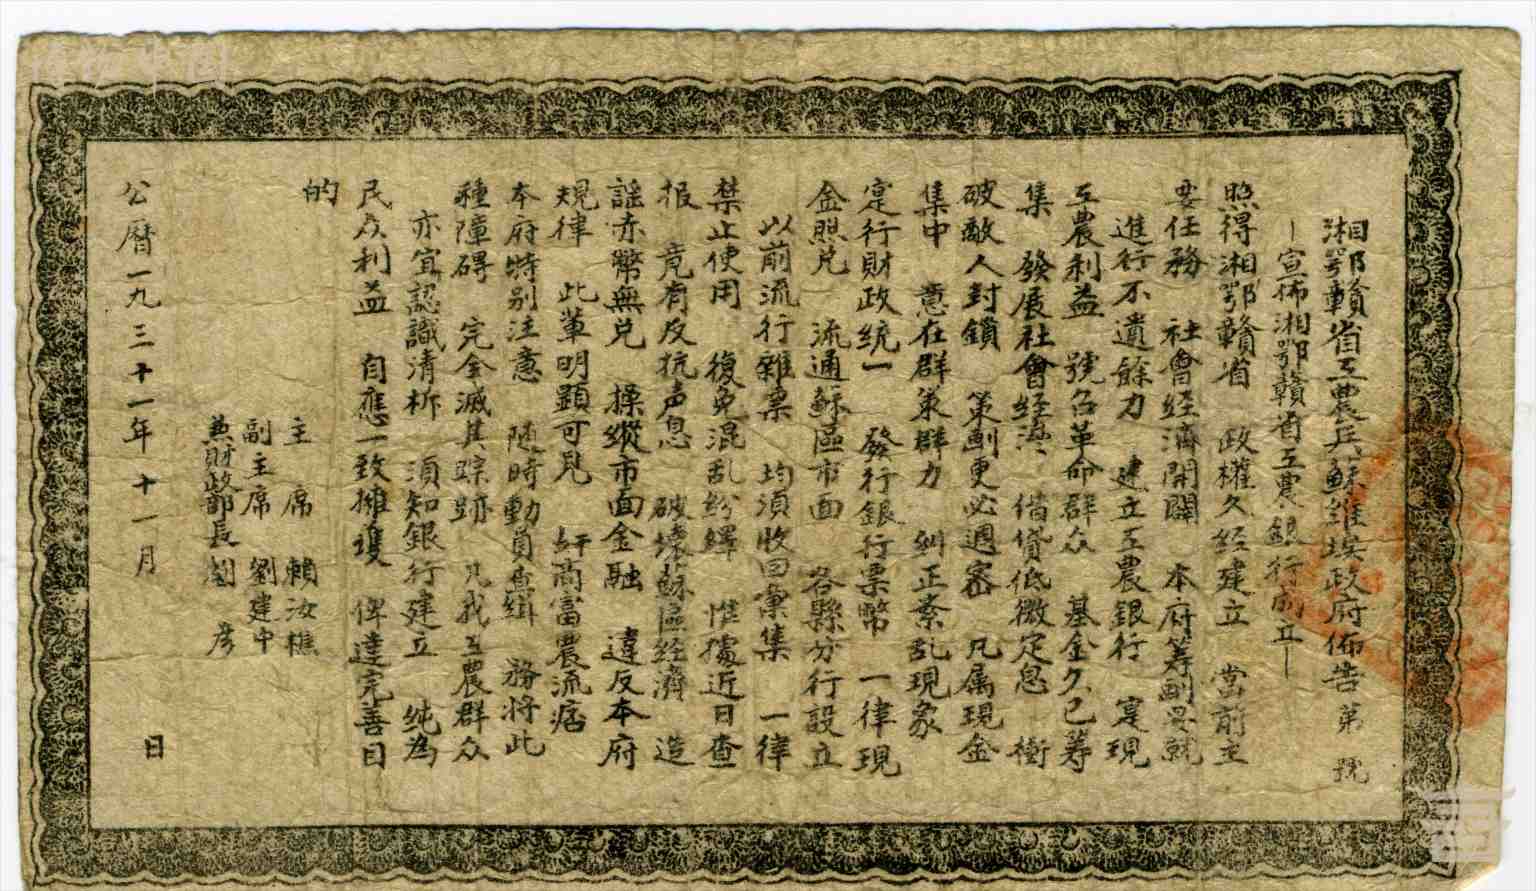 湘鄂贛省工農兵蘇維埃政府佈告 第 號
—宣佈湘鄂贛省工農銀行成立—
照得湘鄂贛省 政權久経建立 當前主
要任務 社會経濟開闢 本府筹劃早就
進行不遺餘力 建立工農銀行 寔現
工農利益 號召革命群众 基金久已筹
集 發展社會経濟 借貸低微定息 衝
破敵人封鎖 策劃更必週密 凡属現金
集中 意在群策群力 糾正紊乱現象
寔行財政統一 發行銀行票幣 一律現
金照兑 流通蘇區市面 各縣分行設立
以前流行雜票 均須收回彙集 一律
禁止使用 復免混乱紛繹 惟據近日查
报 竟有反抗声息 破壞蘇區経濟 造
謡赤幣無兑 操縱市面金融 違反本府
規律 此輩明顯可見 奸商富農流痞
本府特别注意 隨時動員查緝 務將此
種障碍 完全滅其踪跡 凡我工農群众
亦宜認識清析 須知銀行建立 纯為
民众利益 自應一致擁護 俾達完善目
的
主 席 賴汝樵
副主席 劉建中
兼財政部長 劉 彦
公曆一九三十一年十一月 日